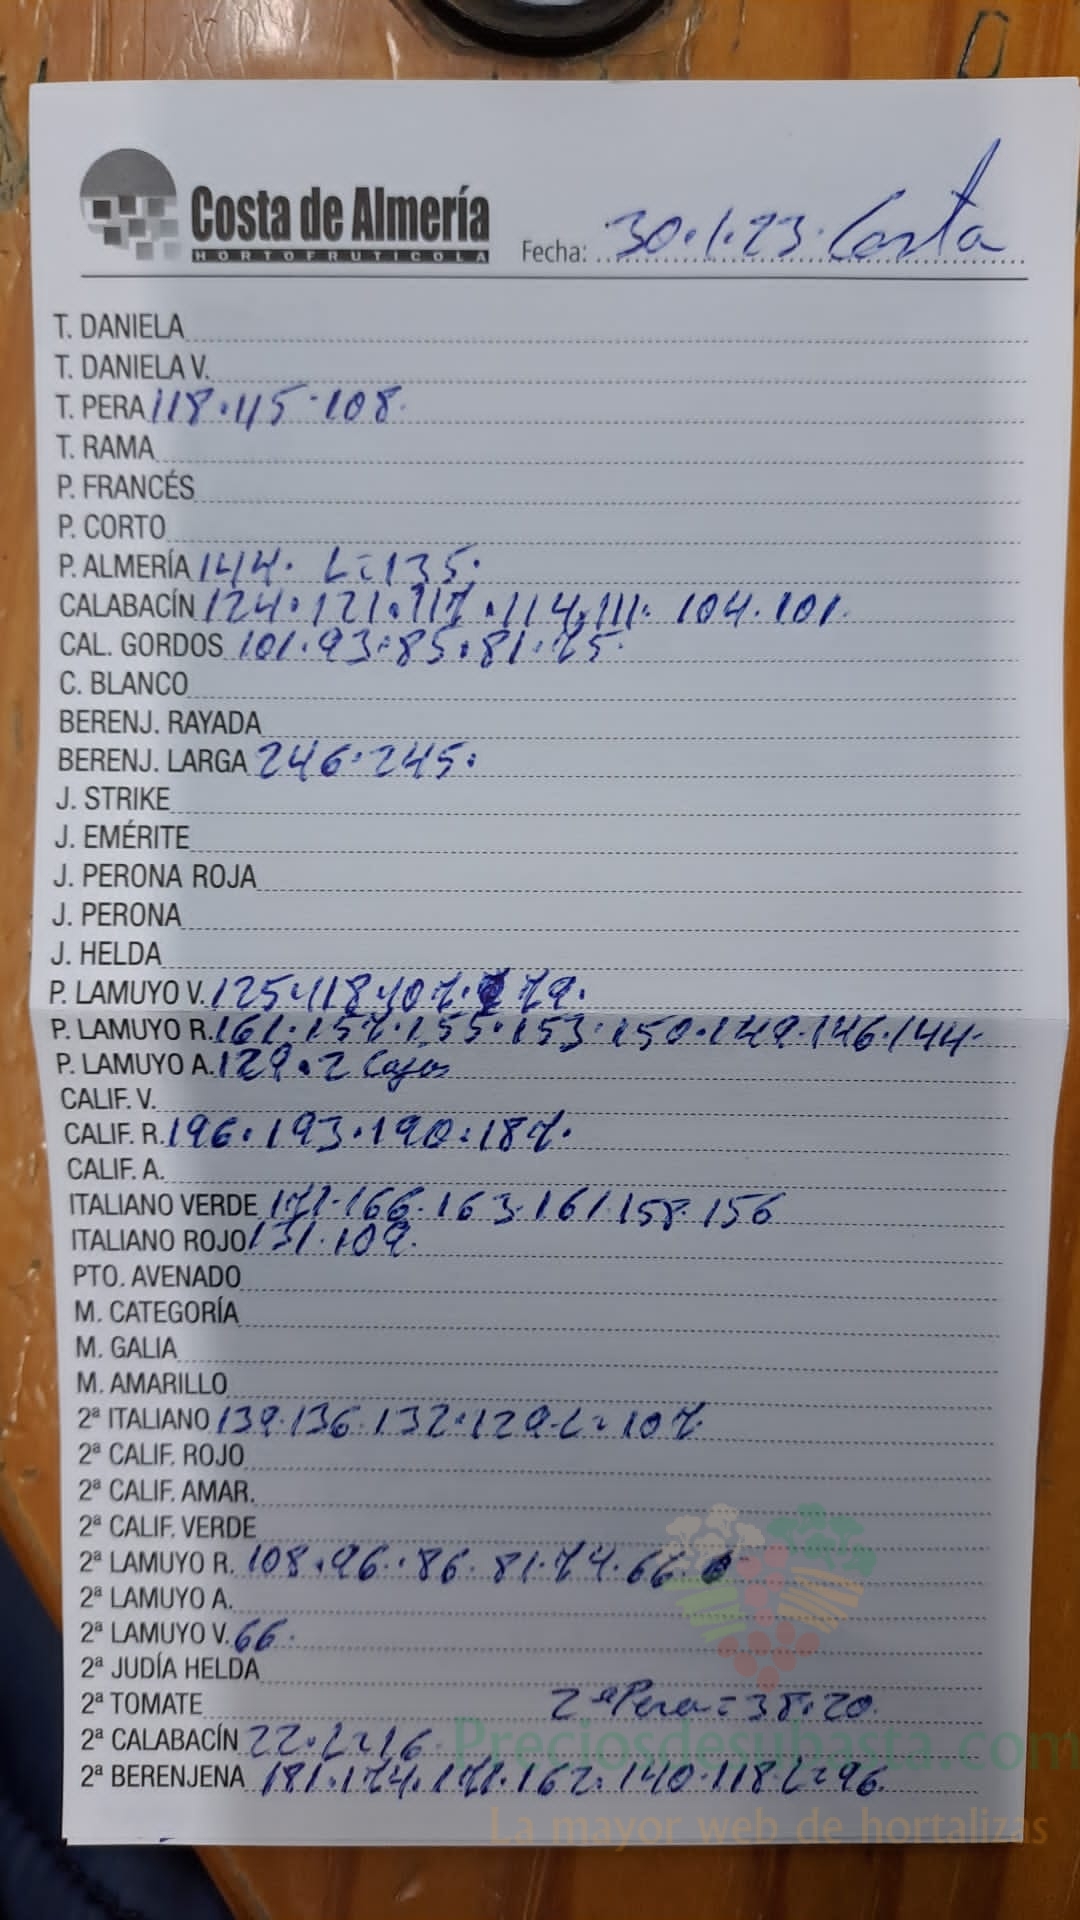 Costa de Almería
HORTOFRUTICOLA
Fecha: 30.1.23. Costa
T. DANIELA
T. DANIELA V.
T. PERA 118.115.108.
T. RAMA
P. FRANCÉS
P. CORTO
P. ALMERÍA 144. L=135.
CALABACÍN 124.121.117.114.111. 104.101.
CAL. GORDOS 101.93.85.81.75.
C. BLANCO
BERENJ. RAYADA
BERENJ. LARGA 246.245.
J. STRIKE
J. EMÉRITE
J. PERONA ROJA
J. PERONA
J. HELDA
P. LAMUYO V. 125.118.107. 79.
P. LAMUYO R. 161.157.155.153.150.149.146.144.
P. LAMUYO A. 129.2 Cajas
CALIF. V.
CALIF. R. 196.193.190.187.
CALIF. A.
ITALIANO VERDE 171.166.163.161.158.156
ITALIANO ROJO 131.109.
PTO. AVENADO
M. CATEGORÍA
M. GALIA
M. AMARILLO
2ª ITALIANO 139.136.132.129.L=107
2ª CALIF. ROJO
2ª CALIF. AMAR.
2ª CALIF. VERDE
2ª LAMUYO R. 108.96.86.81.74.66.
2ª LAMUYO A.
2ª LAMUYO V. 66.
2ª JUDÍA HELDA
2ª TOMATE 2ª Pera=38.20.
2ª CALABACÍN 22.L=16
2ª BERENJENA 181.174.171.162.140.118.L=96.
Preciosdesubasta.com
La mayor web de hortalizas